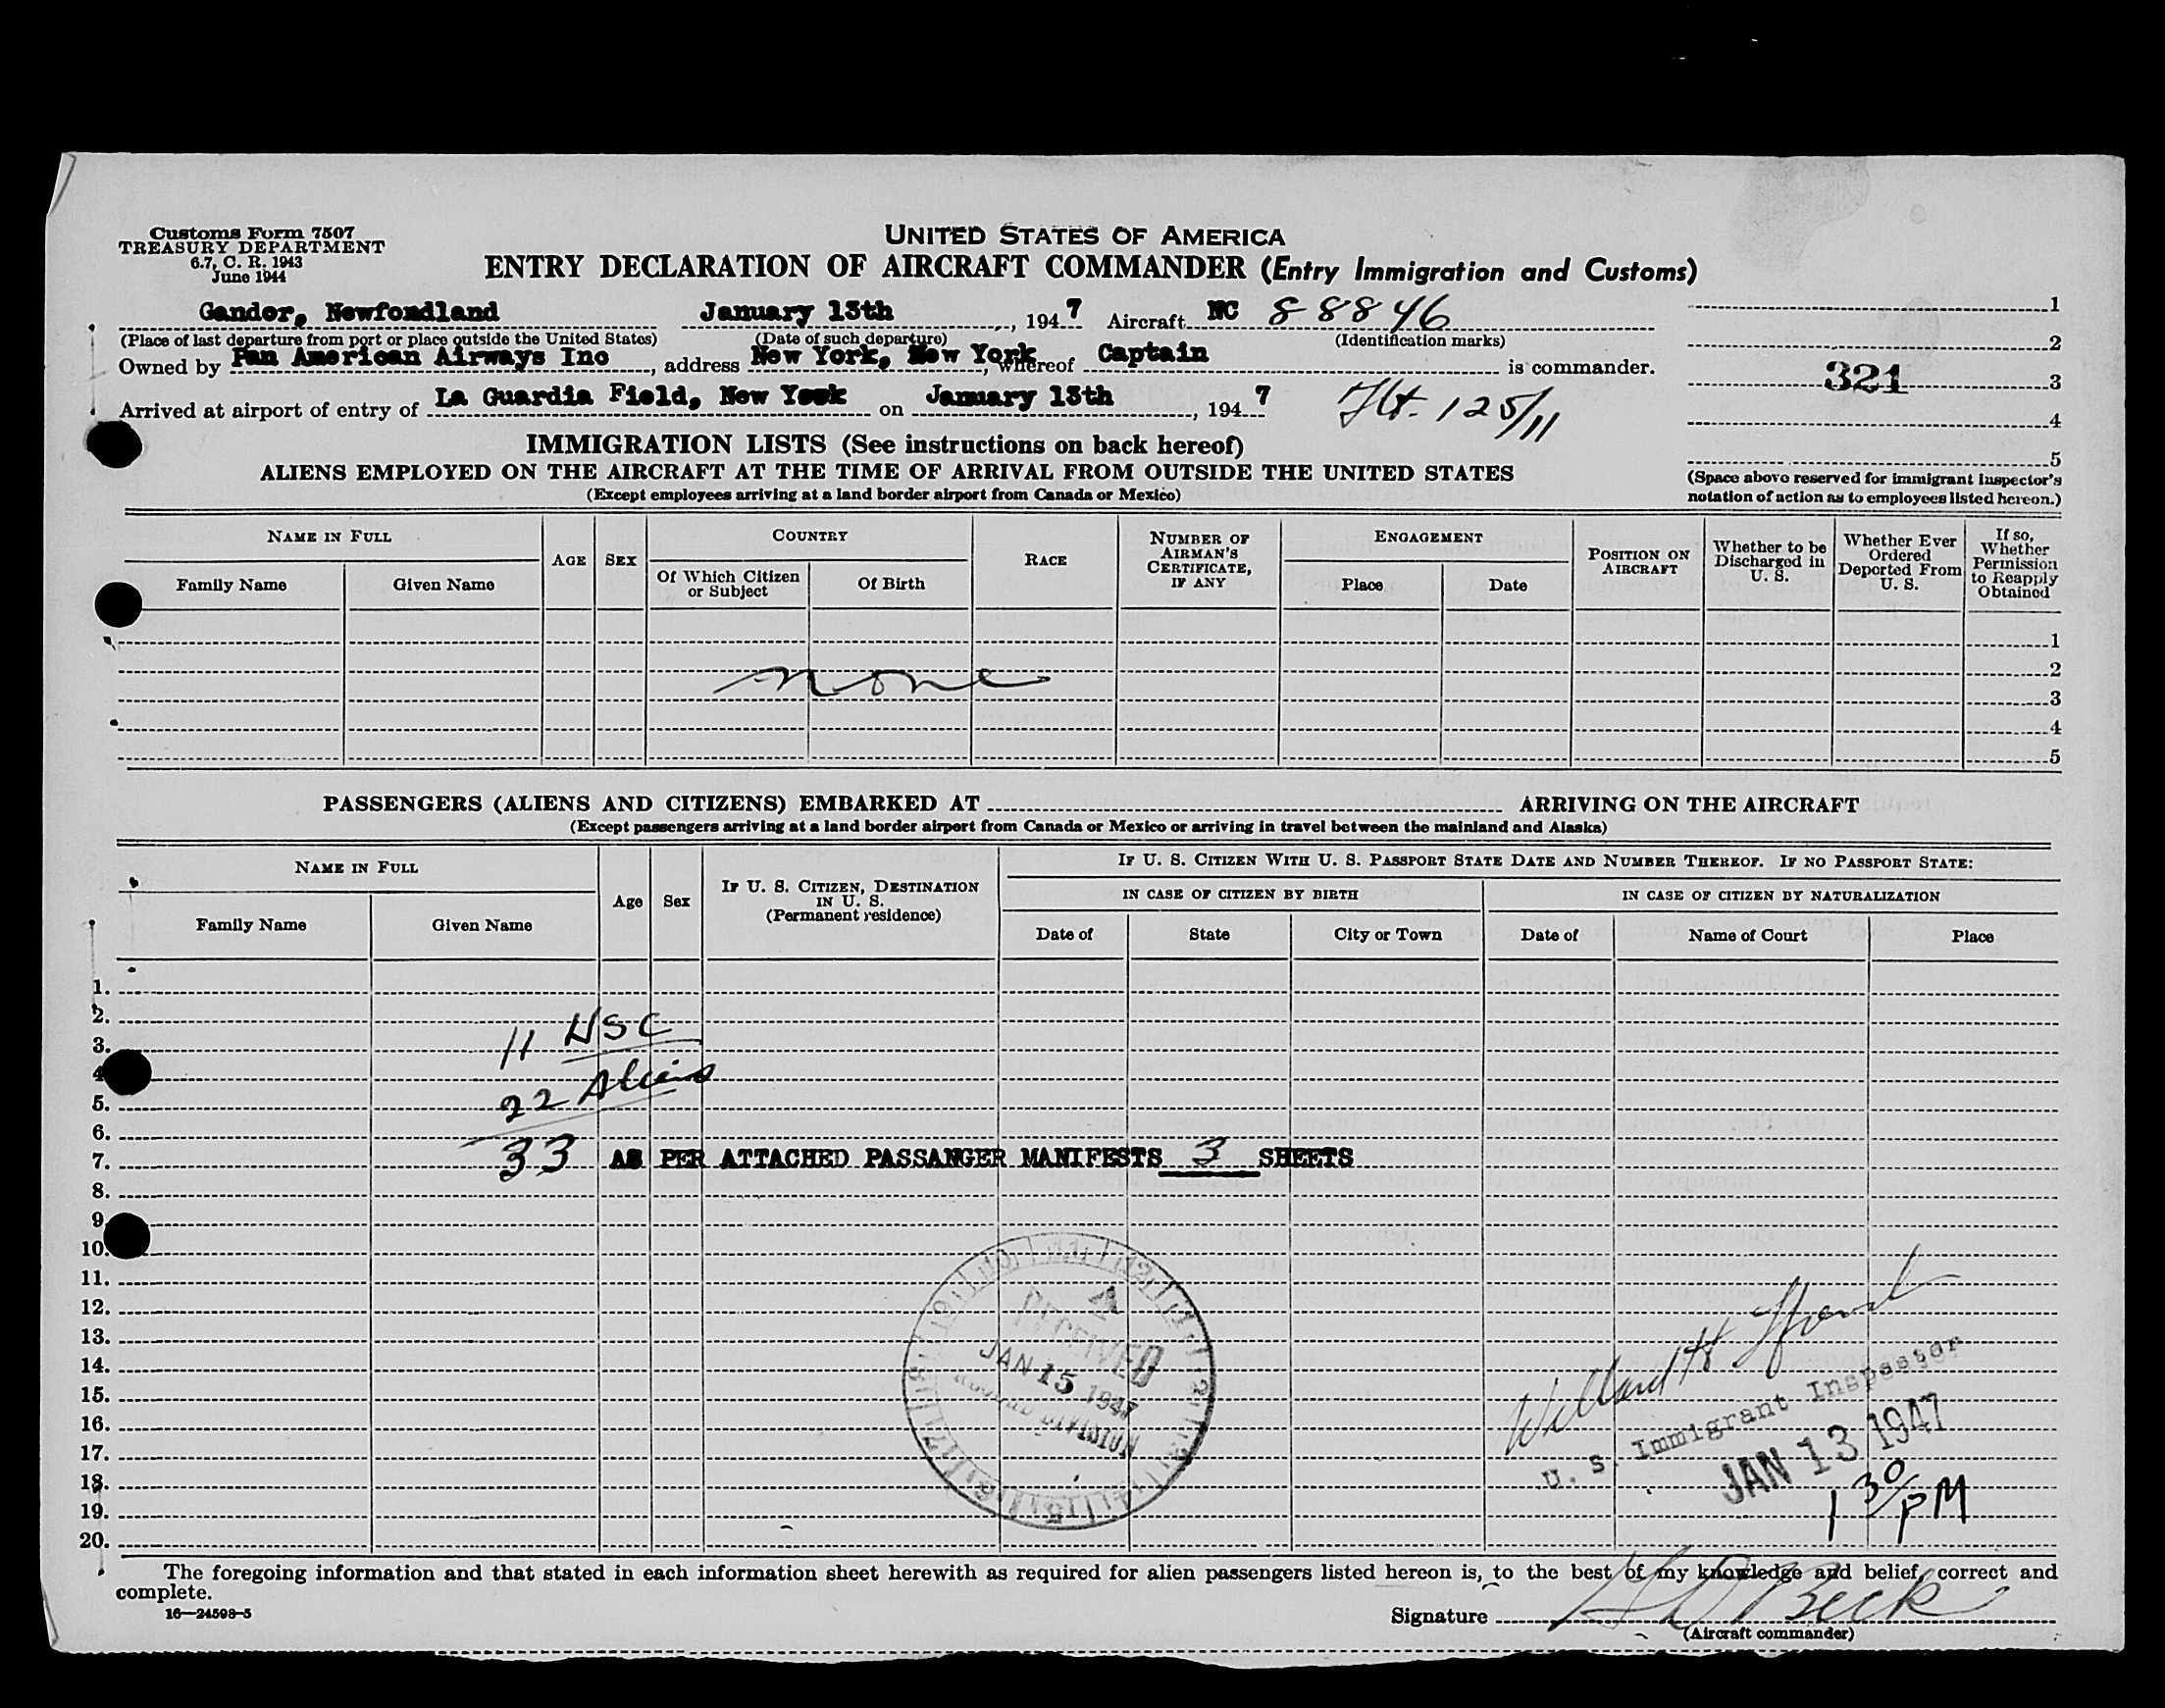 Customs Form 7507
TREASURY DEPARTMENT
6.7, C. R. 1943
June 1944
UNITED STATES OF AMERICA
ENTRY DECLARATION OF AIRCRAFT COMMANDER (Entry Immigration and Customs)
Gander, Newfondland January 13th, 1947 Aircraft NC 88846
(Place of last departure from port or place outside the United States) (Date of such departure) (Identification marks)
Owned by Pan American Airways Inc, address New York, New York, whereof Captain is commander.
Arrived at airport of entry of La Guardia Field, New York on January 13th, 1947 Flt. 125/11
1
2
321 3
4
5
(Space above reserved for immigrant inspector's
notation of action as to employees listed hereon.)
IMMIGRATION LISTS (See instructions on back hereof)
ALIENS EMPLOYED ON THE AIRCRAFT AT THE TIME OF ARRIVAL FROM OUTSIDE THE UNITED STATES
(Except employees arriving at a land border airport from Canada or Mexico)
NAME IN FULL
Family Name Given Name
AGE SEX
COUNTRY
Of Which Citizen or Subject Of Birth
RACE
NUMBER OF AIRMAN'S CERTIFICATE, IF ANY
ENGAGEMENT
Place Date
POSITION ON AIRCRAFT
Whether to be Discharged in U. S.
Whether Ever Ordered Deported From U. S.
If so, Whether Permission to Reapply Obtained
1
2
none
3
4
5
PASSENGERS (ALIENS AND CITIZENS) EMBARKED AT ARRIVING ON THE AIRCRAFT
(Except passengers arriving at a land border airport from Canada or Mexico or arriving in travel between the mainland and Alaska)
NAME IN FULL
Family Name Given Name
Age Sex
IF U. S. CITIZEN, DESTINATION IN U. S. (Permanent residence)
IF U. S. CITIZEN WITH U. S. PASSPORT STATE DATE AND NUMBER THEREOF. IF NO PASSPORT STATE:
IN CASE OF CITIZEN BY BIRTH IN CASE OF CITIZEN BY NATURALIZATION
Date of State City or Town Date of Name of Court Place
1.
2.
3. 11 USC
4.
5. 22 Aliens
6.
7. 33 AS PER ATTACHED PASSANGER MANIFESTS 3 SHEETS
8.
9.
10.
11.
12.
13.
14.
15.
16.
17.
18.
19.
20.
A
RECEIVED
JAN 15 1947
DIVISION
Willard H
U. S. Immigrant Inspector
JAN 13 1947
1 30 PM
The foregoing information and that stated in each information sheet herewith as required for alien passengers listed hereon is, to the best of my knowledge and belief, correct and
complete.
16—24598-5
Signature Beck
(Aircraft commander)